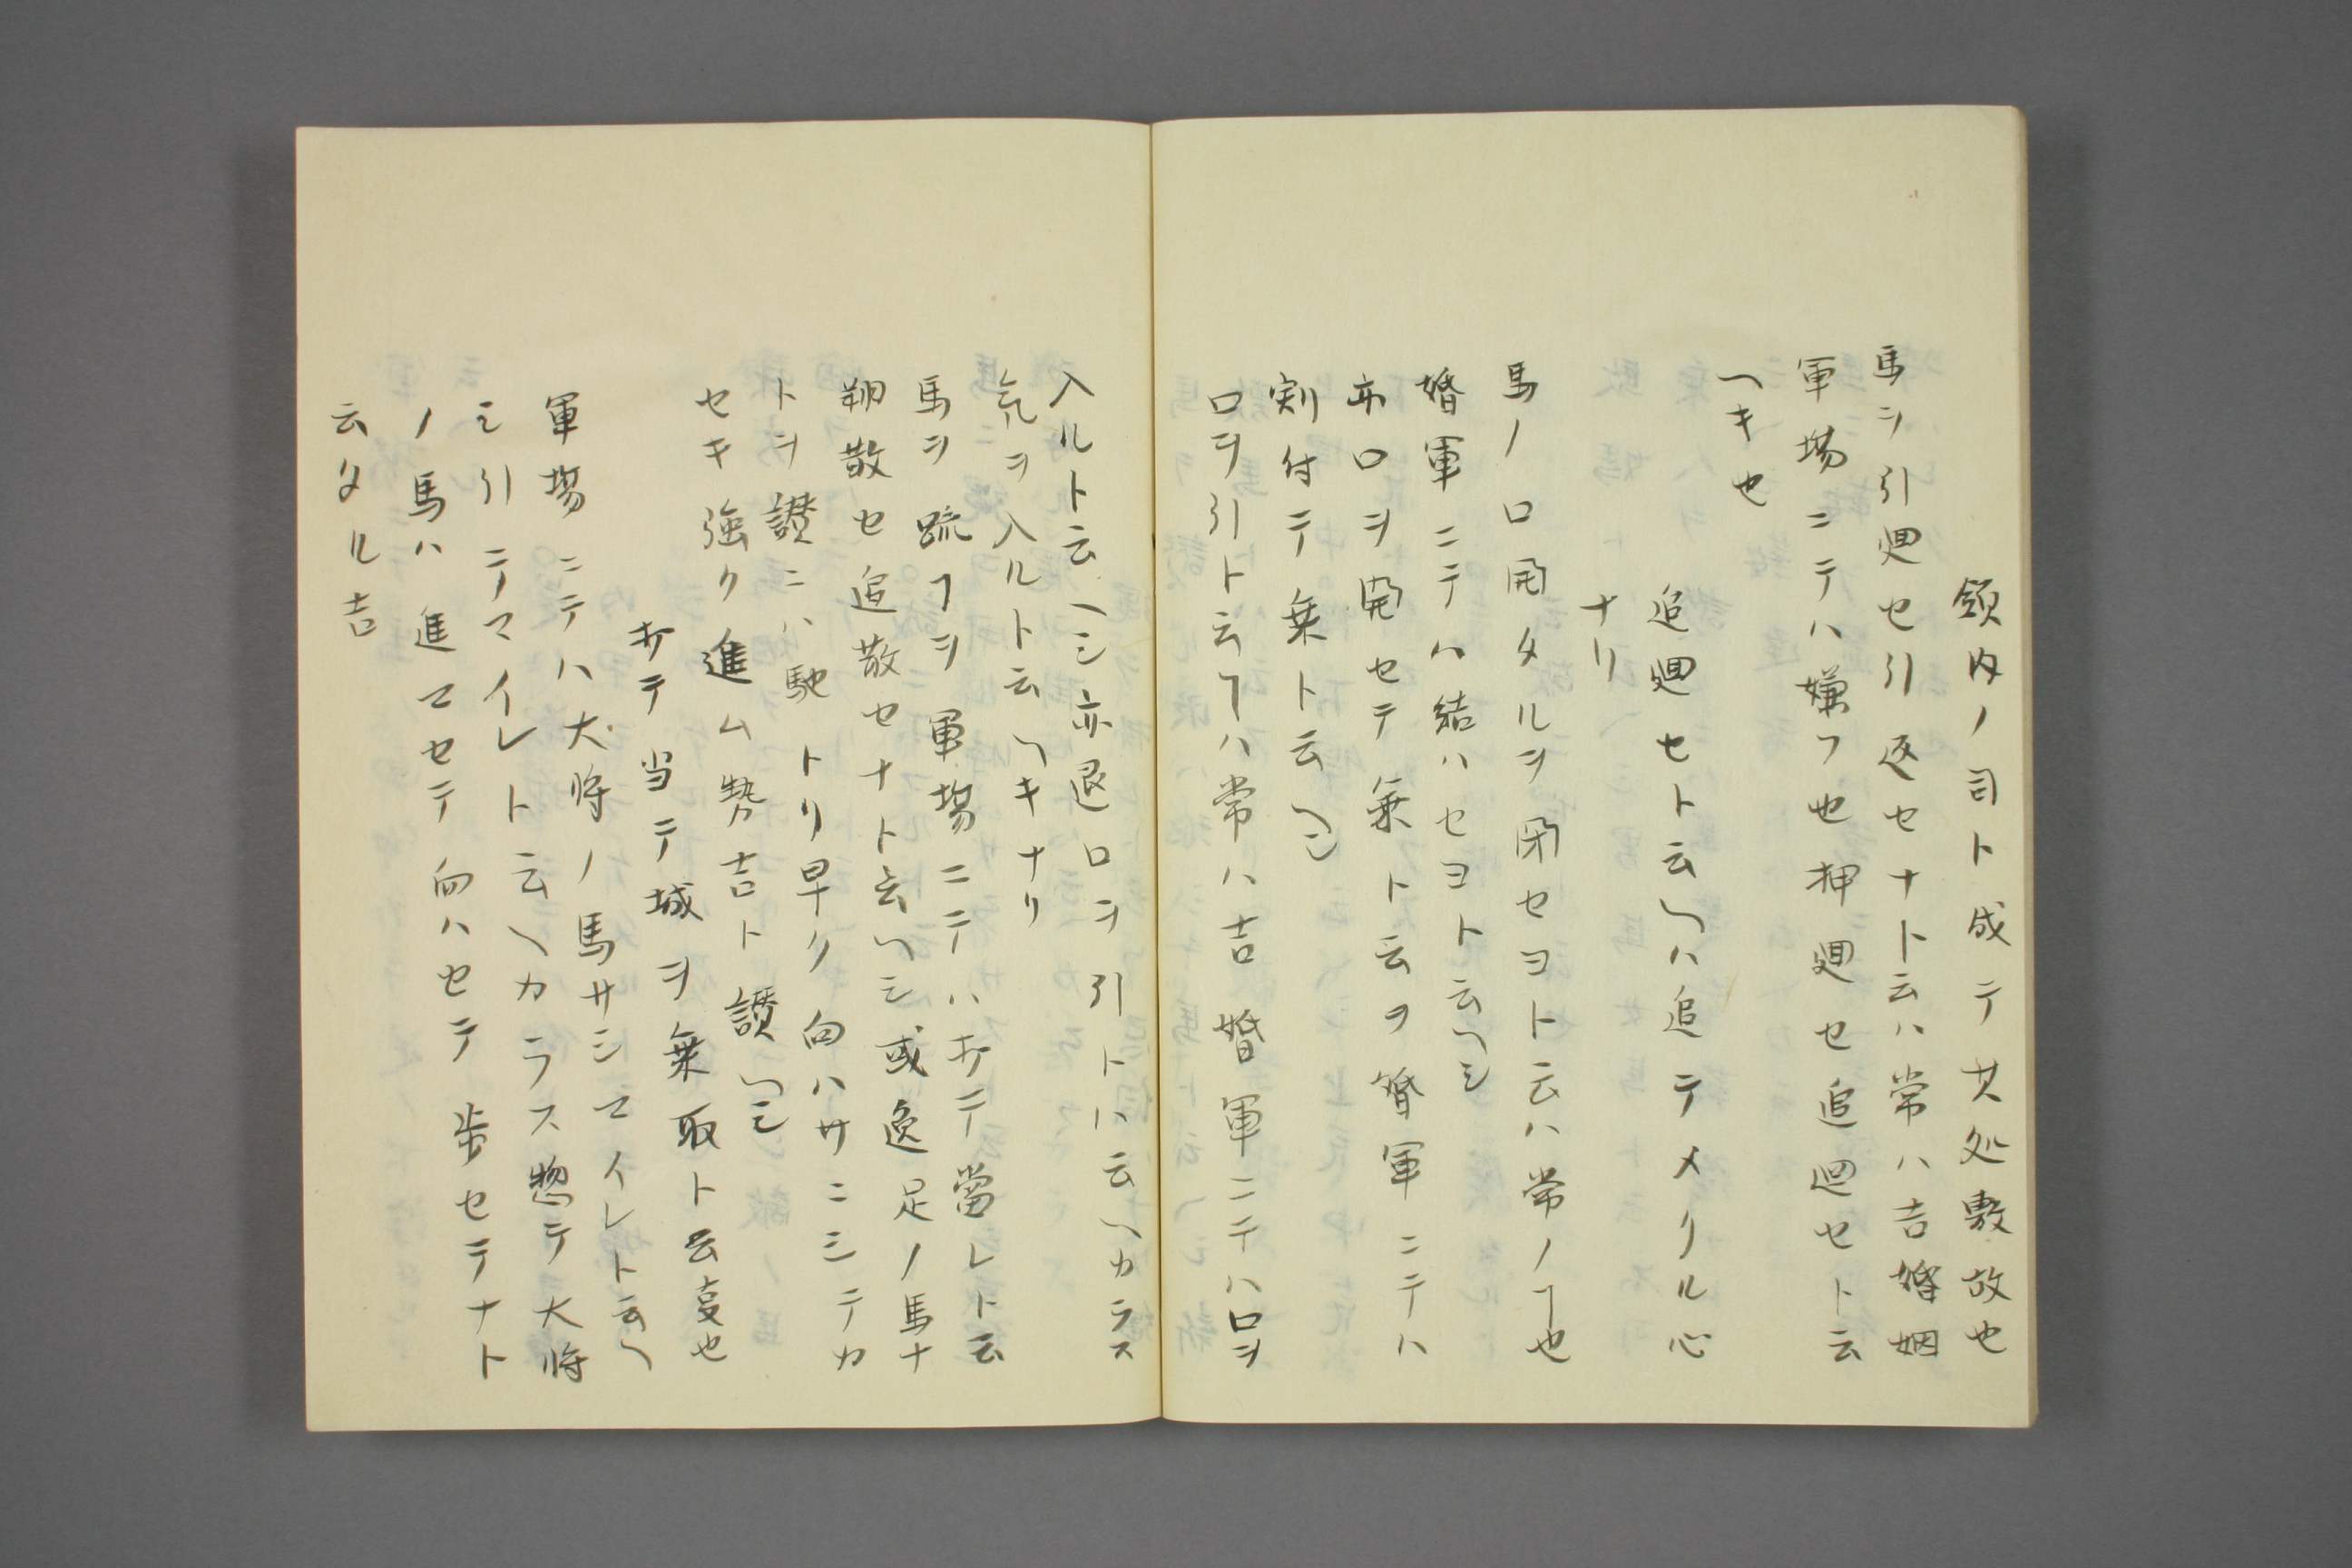 領内ノ司ト成テ其処敷故也
馬ヲ引廻セ引返セナト云ハ常ハ吉婚姻
軍場ニテハ嫌フ也押廻セ追廻セト云
ヘキ也
追廻セト云ヘハ追テメクル心
ナリ
馬ノ口開タルヲ閉セヨト云ハ常ノヿ也
婚軍ニテハ結ハセヨト云ヘシ
亦口ヲ開セテ乗ト云ヲ婚軍ニテハ
割付テ乗ト云ヘシ
口ヲ引ト云ヿハ常ハ吉婚軍ニテハ口ヲ
入ルト云ヘシ亦退口ヲ引トハ云ヘカラス
気ヲ入ルト云ヘキナリ
馬ヲ疏フヲ軍場ニテハ打テ當レト云
翔散セ追散セナト云ヘシ或逸足ノ馬ナ
トヲ讃ニハ馳トリ早ク向ハサニシテカ
セキ強ク進ム勢吉ト讃ヘシ
打テ当テ城ヲ乗取ト云事也
軍場ニテハ大将ノ馬サシマイレト云ヘ
シ引テマイレト云ヘカラス惣テ大将
ノ馬ハ進マセテ向ハセテ歩セテナト
云タル吉